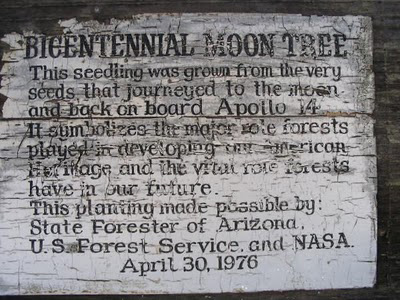 BICENTENNIAL MOON TREE
This seedling was grown from the very
seeds that journeyed to the moon
and back on board Apollo 14
It symbolizes the major role forests
played in developing our American
Heritage and the vital role forests
have in our future.
This planting made possible by:
State Forester of Arizona,
U.S. Forest Service, and NASA.
April 30, 1976